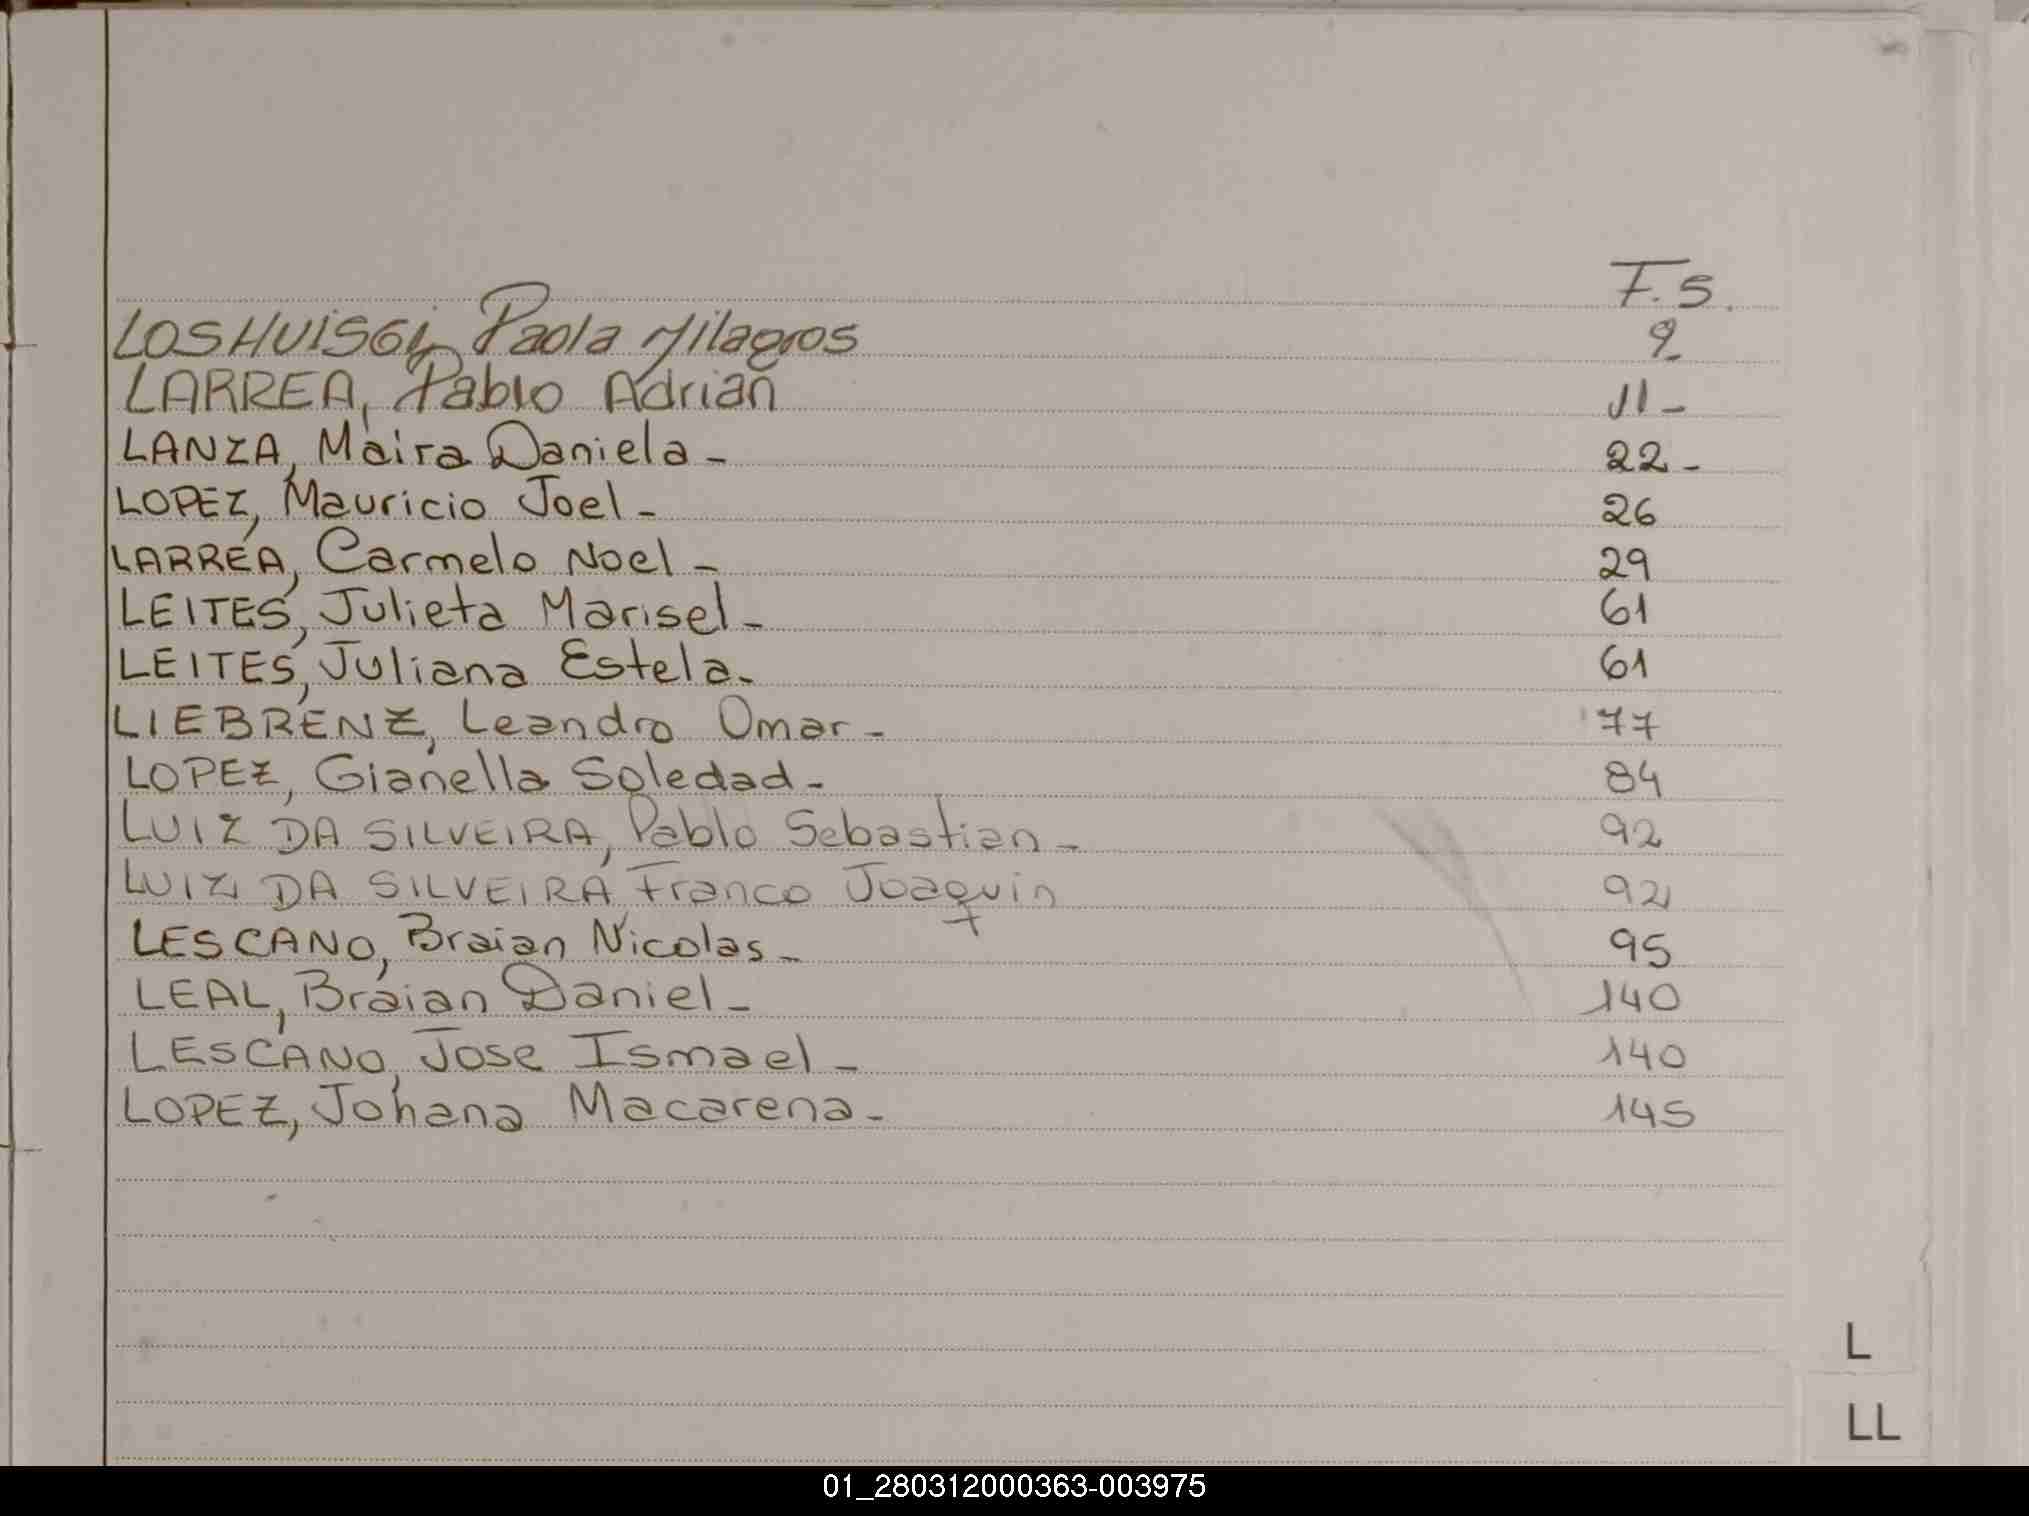 F.S.
LOSHUISGI, Paola Milagros 9
LARREA, Pablo Adrian 11-
LANZA, Maira Daniela - 22-
LOPEZ, Mauricio Joel - 26
LARREA, Carmelo Noel - 29
LEITES, Julieta Marisel - 61
LEITES, Juliana Estela - 61
LIEBRENZ, Leandro Omar - 77
LOPEZ, Gianella Soledad - 84
LUIZ DA SILVEIRA, Pablo Sebastian - 92
LUIZ DA SILVEIRA Franco Joaquin 92
LESCANO, Braian Nicolas - 95
LEAL, Braian Daniel - 140
LESCANO, Jose Ismael - 140
LOPEZ, Johana Macarena - 145
L
LL
01_280312000363-003975